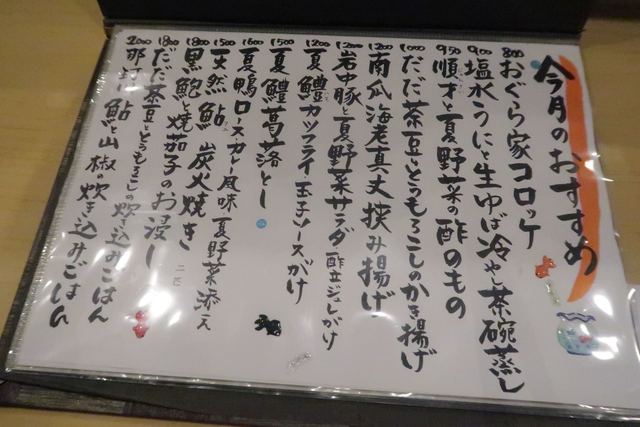 今月のおすすめ
800 おぐら家コロッケ
900 塩水うにと生ゆば冷やし茶碗蒸し
950 順才と夏野菜の酢のもの
1000 だだ茶豆ととうもろこしのかき揚げ
1200 南瓜海老真丈挟み揚げ
1200 岩中豚と夏野菜サラダ 酢立ジュレがけ
1200 夏鱧カツフライ・玉子ソースがけ
1500 夏鱧葛落とし
1600 夏鴨ロースカレー風味 夏野菜添え
1500 天然鮎 炭火焼き 二匹
1800 黒鮑と焼茄子のお浸し
1800 だだ茶豆ととうもろこしの炊き込みごはん
2000 鮎と山椒の炊き込みごはん